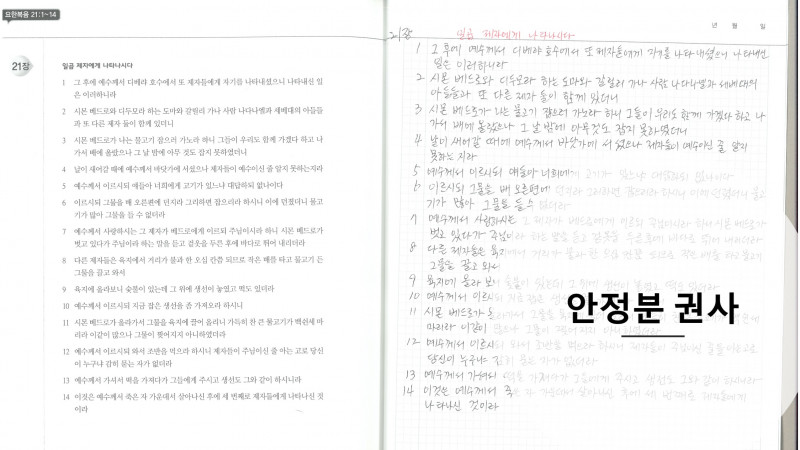 요한복음 21:1~14
21장
일곱 제자에게 나타나시다
1 그 후에 예수께서 디베랴 호수에서 또 제자들에게 자기를 나타내셨으니 나타내신 일
은 이러하니라
2 시몬 베드로와 디두모라 하는 도마와 갈릴리 가나 사람 나다나엘과 세베대의 아들들
과 또 다른 제자 둘이 함께 있더니
3 시몬 베드로가 나는 물고기 잡으러 가노라 하니 그들이 우리도 함께 가겠다 하고 나
가서 배에 올랐으나 그 날 밤에 아무 것도 잡지 못하였더니
4 날이 새어갈 때에 예수께서 바닷가에 서셨으나 제자들이 예수이신 줄 알지 못하는지라
5 예수께서 이르시되 얘들아 너희에게 고기가 있느냐 대답하되 없나이다
6 이르시되 그물을 배 오른편에 던지라 그리하면 잡으리라 하시니 이에 던졌더니 물고
기가 많아 그물을 들 수 없더라
7 예수께서 사랑하시는 그 제자가 베드로에게 이르되 주님이시라 하니 시몬 베드로가
벗고 있다가 주님이라 하는 말을 듣고 겉옷을 두른 후에 바다로 뛰어 내리더라
8 다른 제자들은 육지에서 거리가 불과 한 오십 칸쯤 되므로 작은 배를 타고 물고기 든
그물을 끌고 와서
9 육지에 올라보니 숯불이 있는데 그 위에 생선이 놓였고 떡도 있더라
10 예수께서 이르시되 지금 잡은 생선을 좀 가져오라 하시니
11 시몬 베드로가 올라가서 그물을 육지에 끌어 올리니 가득히 찬 큰 물고기가 백쉰세 마
리라 이같이 많으나 그물이 찢어지지 아니하였더라
12 예수께서 이르시되 와서 조반을 먹으라 하시니 제자들이 주님이신 줄 아는 고로 당신
이 누구냐 감히 묻는 자가 없더라
13 예수께서 가셔서 떡을 가져다가 그들에게 주시고 생선도 그와 같이 하시니라
14 이것은 예수께서 죽은 자 가운데서 살아나신 후에 세 번째로 제자들에게 나타나신 것
이라
년 월 일
21장 일곱 제자에게 나타나시다
1 그 후에 예수께서 디베랴 호수에서 또 제자들에게 자기를 나타내셨으니 나타내신
일은 이러하니라
2 시몬 베드로와 디두모라 하는 도마와 갈릴리 가나 사람 나다나엘과 세베대의
아들들과 또 다른 제자 둘이 함께 있더니
3 시몬 베드로가 나는 물고기 잡으러 가노라 하니 그들이 우리도 함께 가겠다 하고 나
가서 배에 올랐으나 그 날 밤에 아무것도 잡지 못하였더니
4 날이 새어갈 때에 예수께서 바닷가에 서셨으나 제자들이 예수이신 줄 알지
못하는지라
5 예수께서 이르시되 얘들아 너희에게 고기가 있느냐 대답하되 없나이다
6 이르시되 그물을 배 오른편에 던지라 그리하면 잡으리라 하시니 이에 던졌더니 물고
기가 많아 그물을 들 수 없더라
7 예수께서 사랑하시는 그 제자가 베드로에게 이르되 주님이시라 하니 시몬 베드로가
벗고 있다가 주님이라 하는 말을 듣고 겉옷을 두른 후에 바다로 뛰어 내리더라
8 다른 제자들은 육지에서 거리가 불과 한 오십 칸쯤 되므로 작은 배를 타고 물고기
그물을 끌고 와서
9 육지에 올라보니 숯불이 있는데 그 위에 생선이 놓였고 떡도 있더라
10 예수께서 이르시되 지금 잡은 생선
11 시몬 베드로가 올라가서 그물을 육지
마리라 이같이 많으나 그물이 찢어지지 아니하였더라
12 예수께서 이르시되 와서 조반을 먹으라 하시니 제자들이 주님이신 줄을 아는 고로
당신이 누구냐 감히 묻는 자가 없더라
13 예수께서 가셔서 떡을 가져다가 그들에게 주시고 생선도 그와 같이 하시니라
14 이것은 예수께서 죽은 자 가운데서 살아나신 후에 세 번째로 제자들에게
나타나신 것이라
안정분 권사